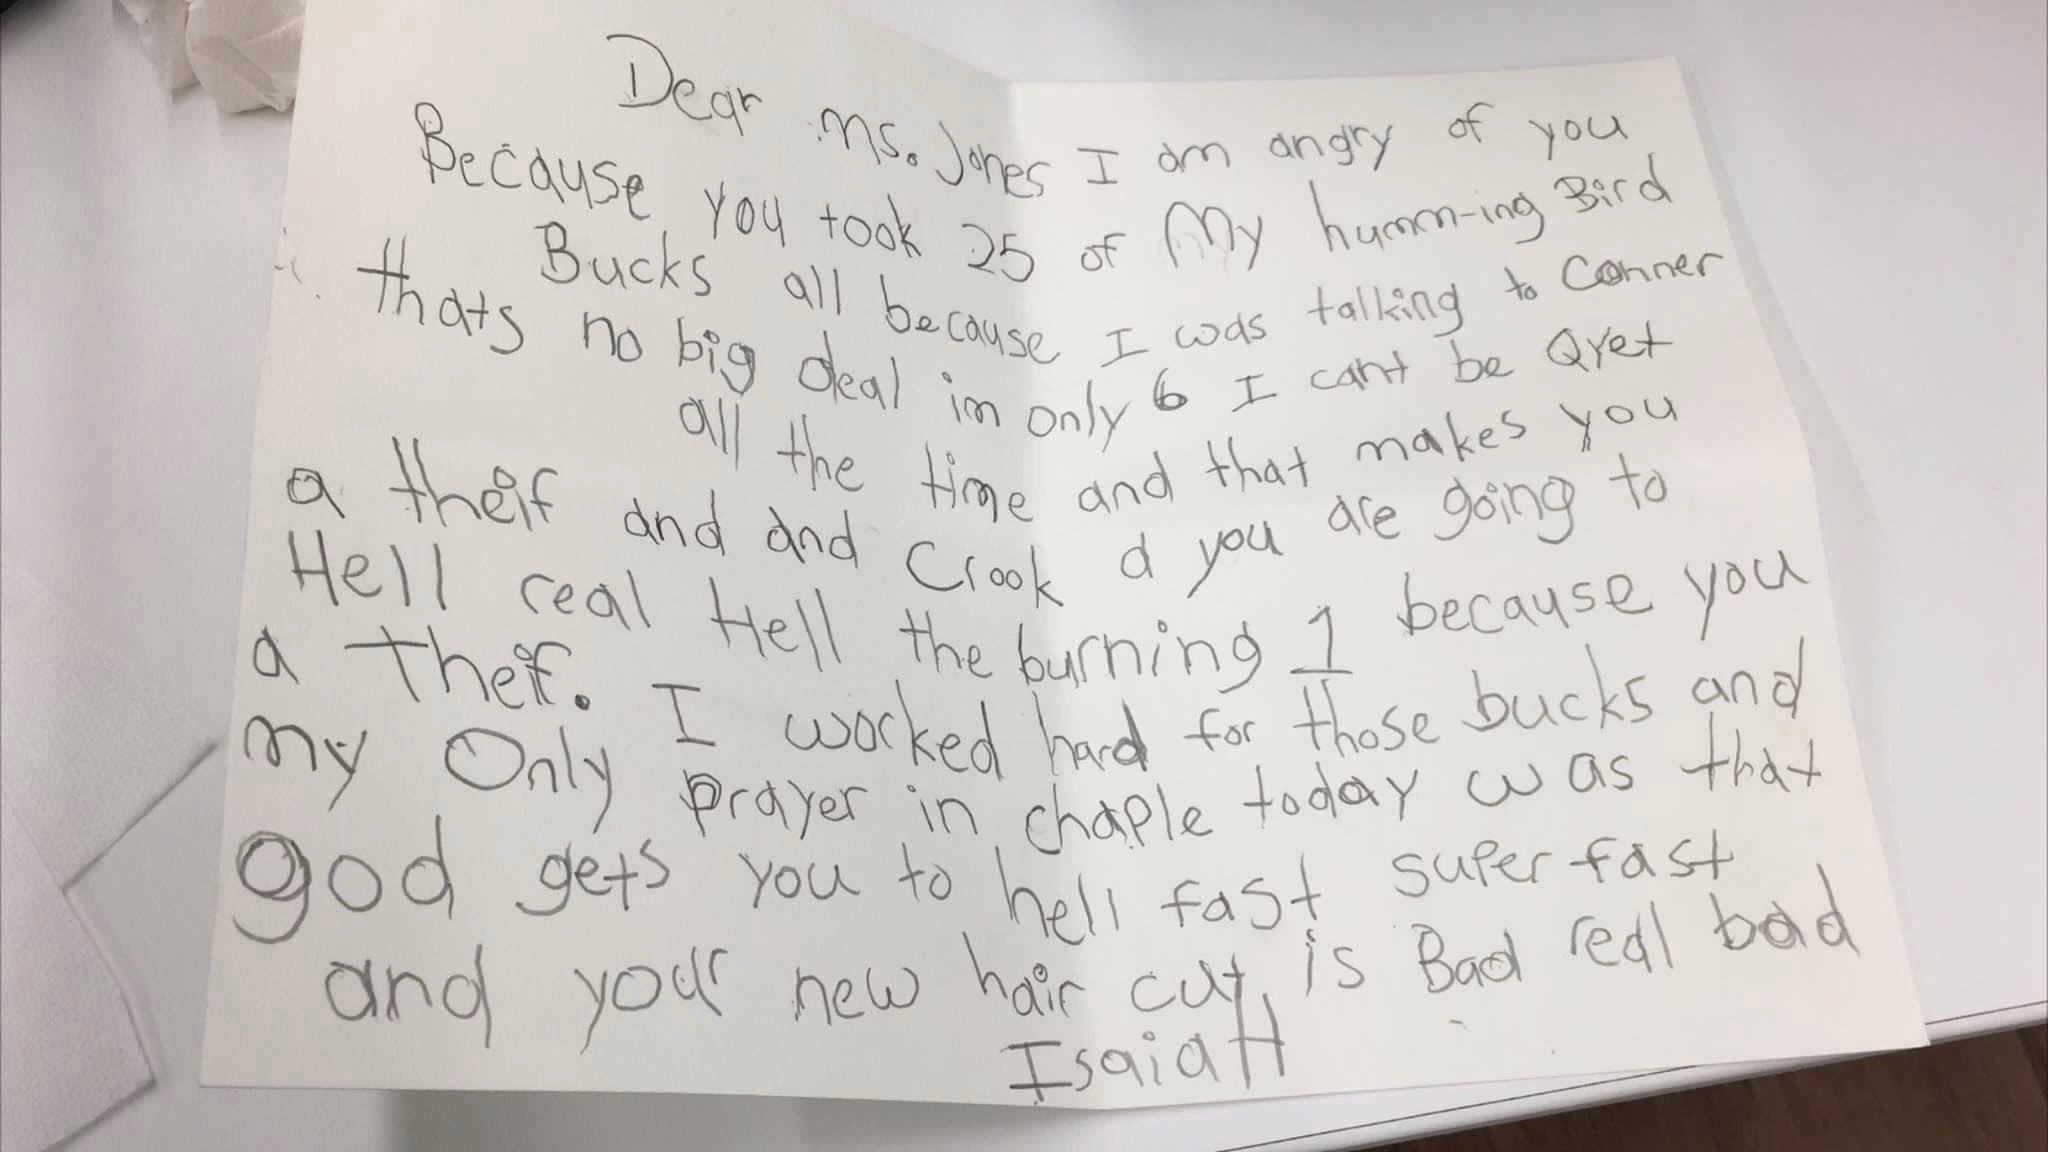 Dear Ms. Jones I am angry of you
Because you took 25 of My humm-ing Bird
Bucks all because I was talking to Conner
thats no big deal im only 6 I cant be Qyet
all the time and that makes you
a theif and and Crook d you are going to
Hell real Hell the burning 1 because you
a Theif. I worked hard for those bucks and
my Only prayer in chaple today was that
god gets you to hell fast super fast
and your new hair cut is Bad real bad
IsaiaH